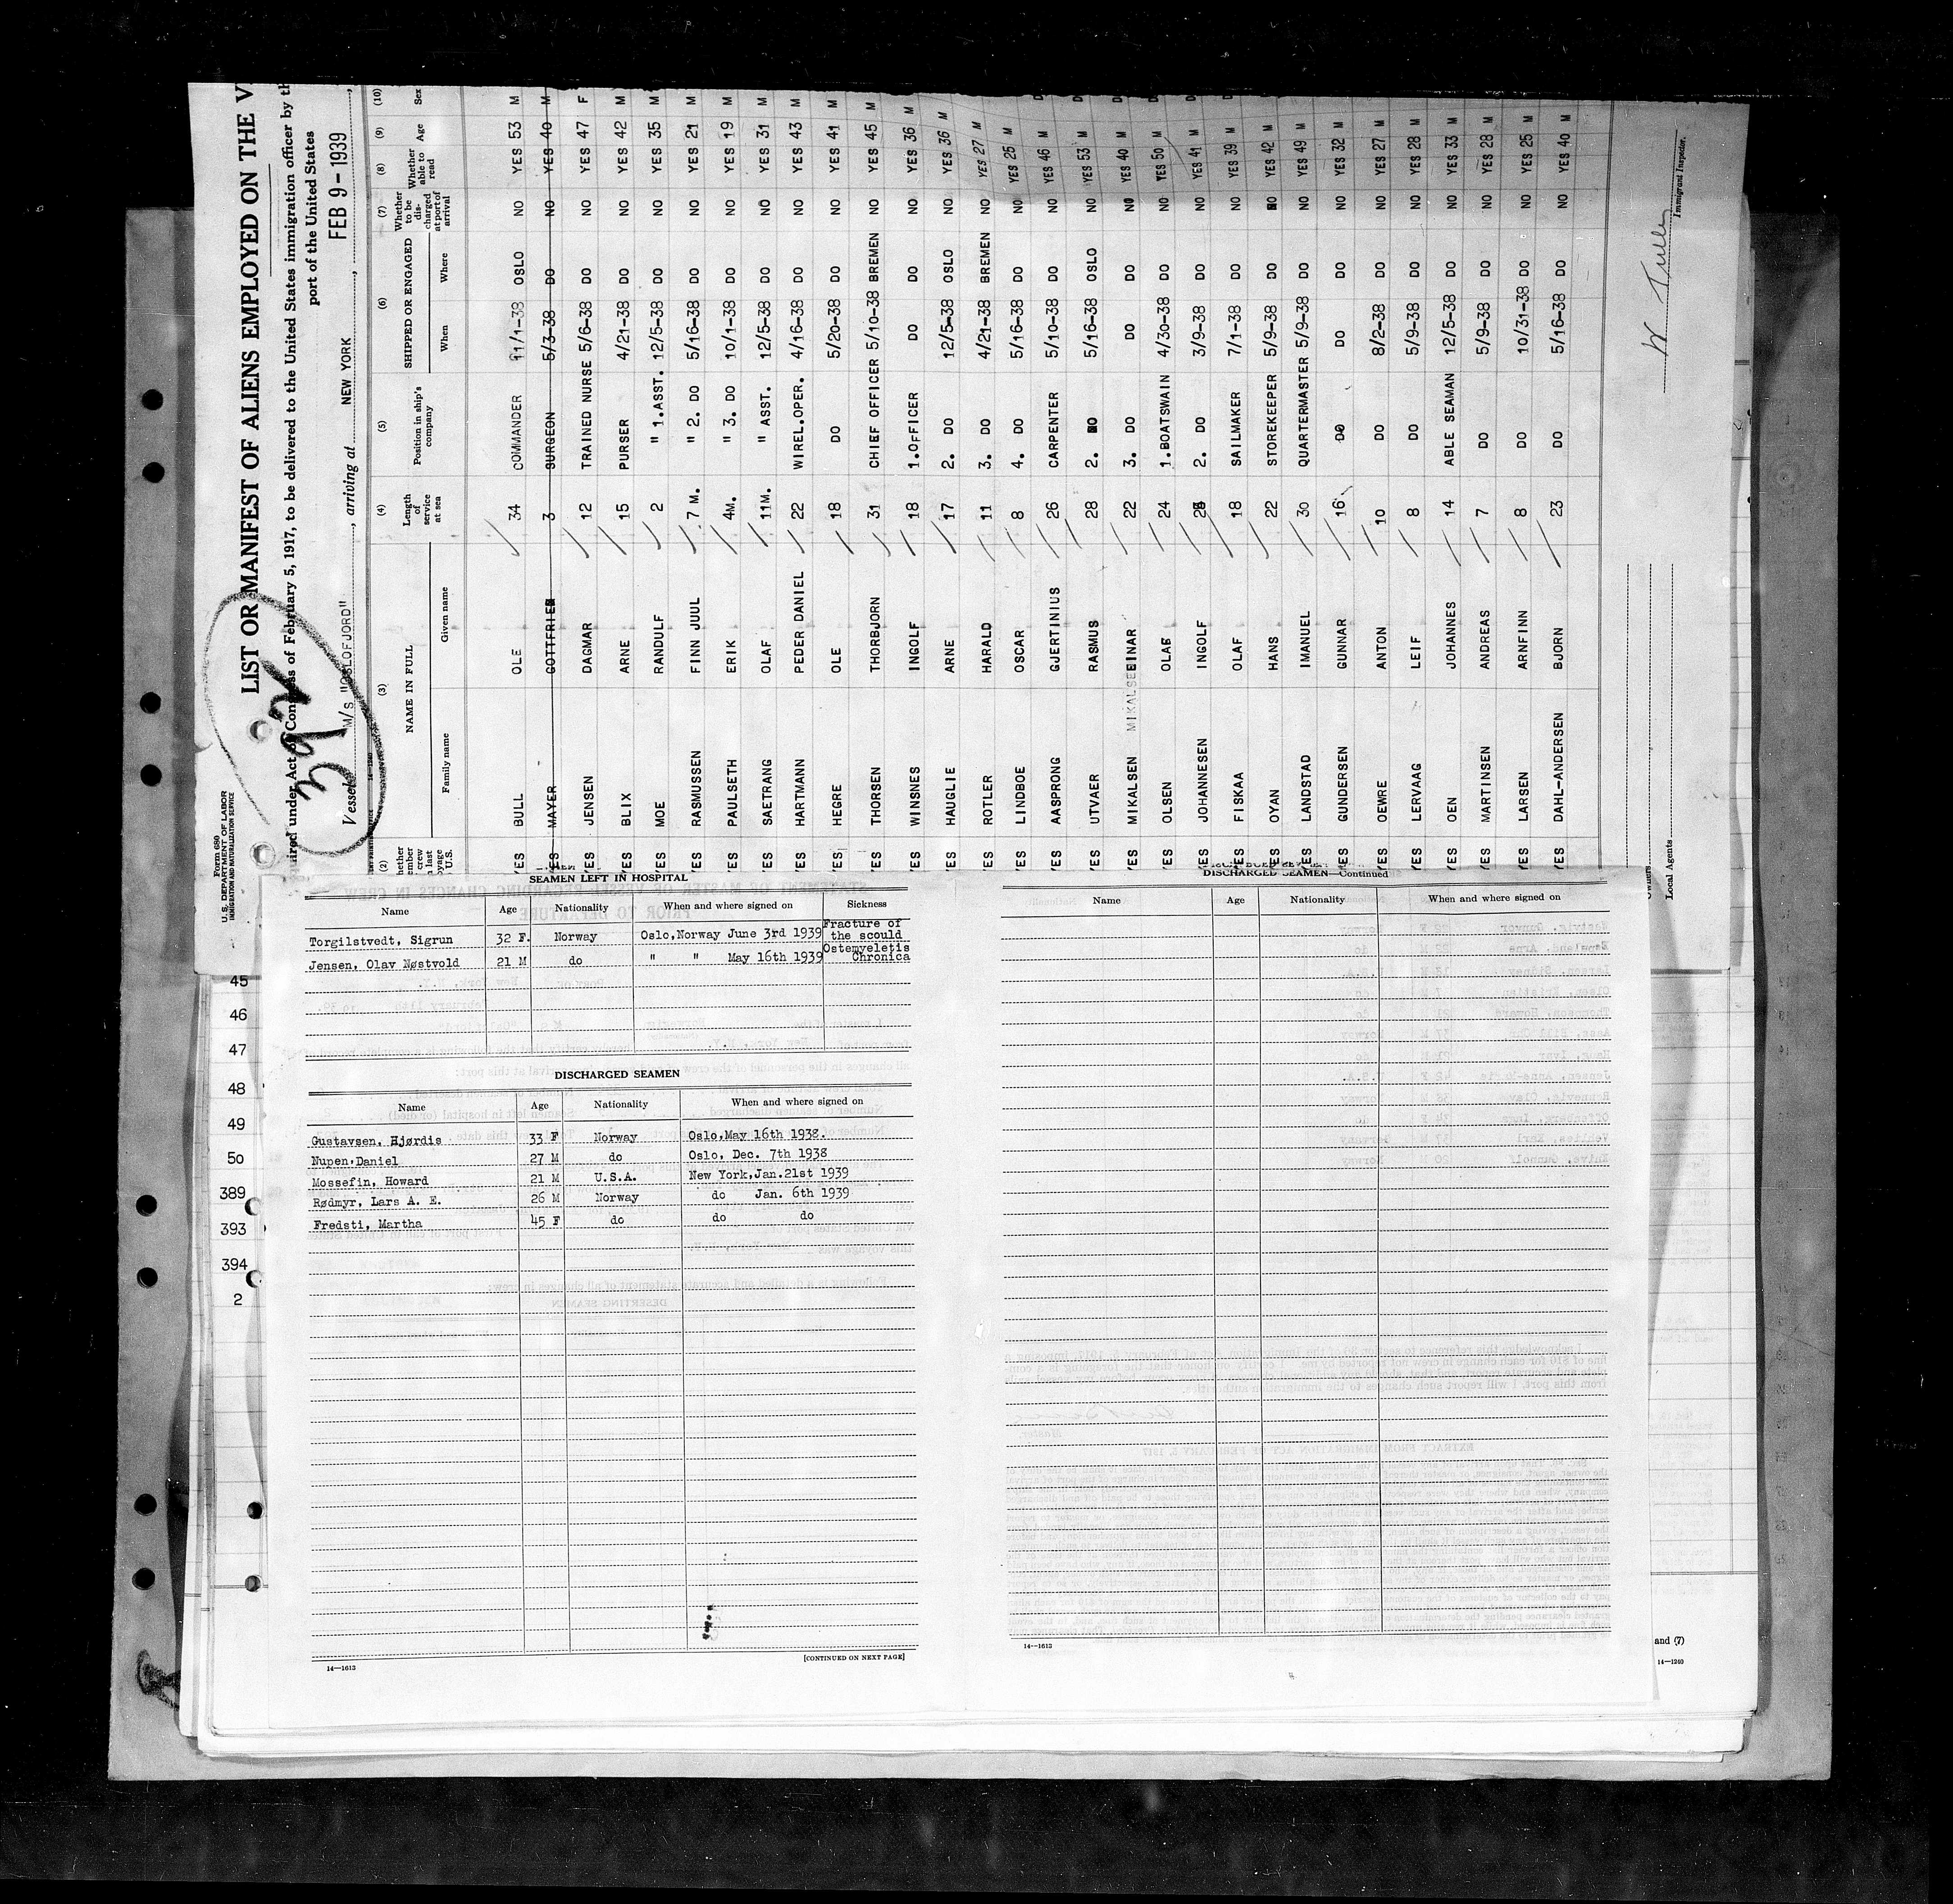 Form 680
U. S. DEPARTMENT OF LABOR
IMMIGRATION AND NATURALIZATION SERVICE
392
LIST OR MANIFEST OF ALIENS EMPLOYED ON THE V
ired under Act of Congress of February 5, 1917, to be delivered to the United States immigration officer by th
port of the United States
Vessel M/s "OSLOFJORD", arriving at NEW YORK, FEB 9-1939,
(2) (3) (4) (5) (6) (7) (8) (9) (10)
NAME IN FULL Length of service at sea Position in ship's company SHIPPED OR ENGAGED Whether to be discharged at port of arrival Whether able to read Age Sex
Family name Given name When Where
YES BULL OLE 34 COMMANDER 11/1-38 OSLO NO YES 53 M
YES MAYER GOTTFRIED 3 SURGEON 5/3-38 DO NO YES 40 M
YES JENSEN DAGMAR 12 TRAINED NURSE 5/6-38 DO NO YES 47 F
YES BLIX ARNE 15 PURSER 4/21-38 DO NO YES 42 M
YES MOE RANDULF 2 " 1.ASST. 12/5-38 DO NO YES 35 M
YES RASMUSSEN FINN JUUL 7 M. " 2. DO 5/16-38 DO NO YES 21 M
YES PAULSETH ERIK 4M. " 3. DO 10/1-38 DO NO YES 19 M
YES SAETRANG OLAF 11M. " ASST. 12/5-38 DO NO YES 31 M
YES HARTMANN PEDER DANIEL 22 WIREL.OPER. 4/16-38 DO NO YES 43 M
YES HEGRE OLE 18 DO 5/20-38 DO NO YES 41 M
YES THORSEN THORBJORN 31 CHIEF OFFICER 5/10-38 BREMEN NO YES 45 M
YES WINSNES INGOLF 18 1.OFFICER DO DO NO YES 36 M
YES HAUGLIE ARNE 17 2. DO 12/5-38 OSLO NO YES 36 M
YES ROTLER HARALD 11 3. DO 4/21-38 BREMEN NO YES 27 M
YES LINDBOE OSCAR 8 4. DO 5/16-38 DO NO YES 25 M
YES AASPRONG GJERTINIUS 26 CARPENTER 5/10-38 DO NO YES 46 M
YES UTVAER RASMUS 28 2. DO 5/16-38 OSLO NO YES 53 M
YES MIKALSEN MIKALSEEINAR 22 3. DO DO DO NO YES 40 M
YES OLSEN OLAF 24 1.BOATSWAIN 4/30-38 DO NO YES 50 M
YES JOHANNESEN INGOLF 2. DO 3/9-38 DO NO YES 41 M
YES FISKAA OLAF 18 SAILMAKER 7/1-38 DO NO YES 39 M
YES OYAN HANS 22 STOREKEEPER 5/9-38 DO NO YES 42 M
YES LANDSTAD IMANUEL 30 QUARTERMASTER 5/9-38 DO NO YES 49 M
YES GUNDERSEN GUNNAR 16 DO DO DO NO YES 32 M
YES OEWRE ANTON 10 DO 8/2-38 DO NO YES 27 M
YES LERVAAG LEIF 8 DO 5/9-38 DO NO YES 28 M
YES OEN JOHANNES 14 ABLE SEAMAN 12/5-38 DO NO YES 33 M
YES MARTINSEN ANDREAS 7 DO 5/9-38 DO NO YES 28 M
YES LARSEN ARNFINN 8 DO 10/31-38 DO NO YES 25 M
YES DAHL-ANDERSEN BJORN 23 DO 5/16-38 DO NO YES 40 M
Immigrant Inspector.
Owners
Local Agents
SEAMEN LEFT IN HOSPITAL
Name Age Nationality When and where signed on Sickness
Torgilstvedt, Sigrun 32 F. Norway Oslo,Norway June 3rd 1939 Fracture of the scould
Jensen, Olav Nøstvold 21 M do " " May 16th 1939 Ostemyeletis Chronica
DISCHARGED SEAMEN
Name Age Nationality When and where signed on
Gustavsen, Hjørdis 33 F Norway Oslo,May 16th 1938.
Nupen,Daniel 27 M do Oslo, Dec. 7th 1938
Mossefin, Howard 21 M U.S.A. New York,Jan.21st 1939
Rødmyr, Lars A. E. 26 M Norway do Jan. 6th 1939
Fredsti, Martha 45 F do do do
14—1613
[CONTINUED ON NEXT PAGE]
DISCHARGED SEAMEN—Continued
Name Age Nationality When and where signed on
14—1613
45
46
47
48
49
50
389
393
394
2
and (7)
14—1240